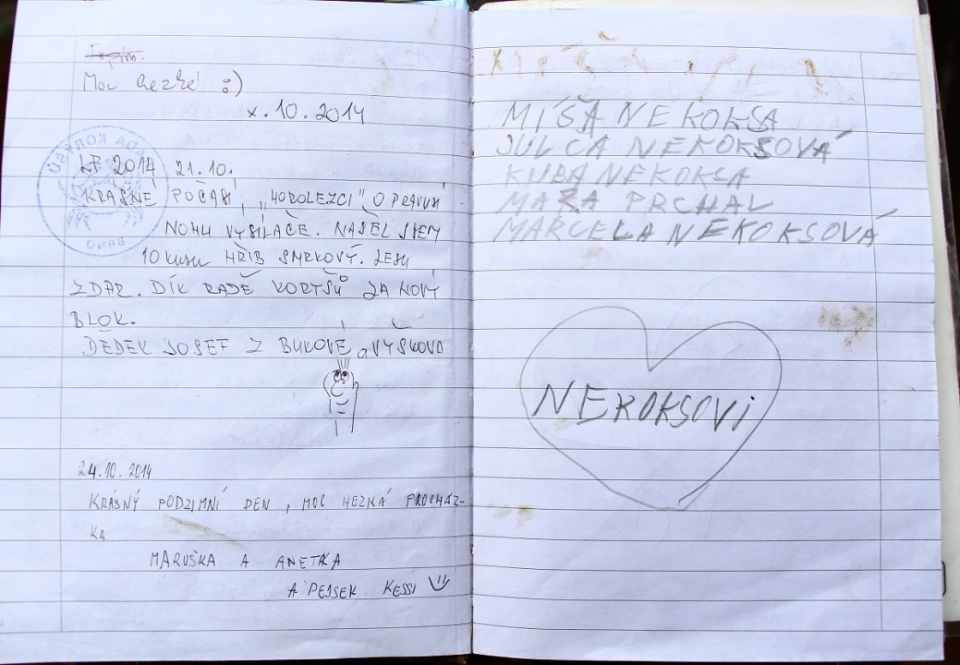 Moc hezké :)
x. 10. 2014
RADA KORYŠŮ
BRNO
LP 2014 21.10.
KRÁSNÉ POČASÍ, „HOROLEZCI" OPRAVUJÍ
NOHU VYSÍLAČE. NAŠEL JSEM
10 kusů HŘIB SMRKOVÝ. LESU
ZDAR. DÍK RADĚ KORYŠŮ ZA NOVÝ
BLOK.
DĚDEK JOSEF Z BUKOVÉ
24.10.2014
KRÁSNÝ PODZIMNÍ DEN, MOC HEZKÁ PROCHÁZ-
KA
MARUŠKA A ANETKA
A PEJSEK KESSI
MÍŠA NEKOKSA
JULČA NEKOKSOVÁ
KUBA NEKOKSA
MÁŘA PRCHAL
MARCELA NEKOKSOVÁ
NEKOKSOVI